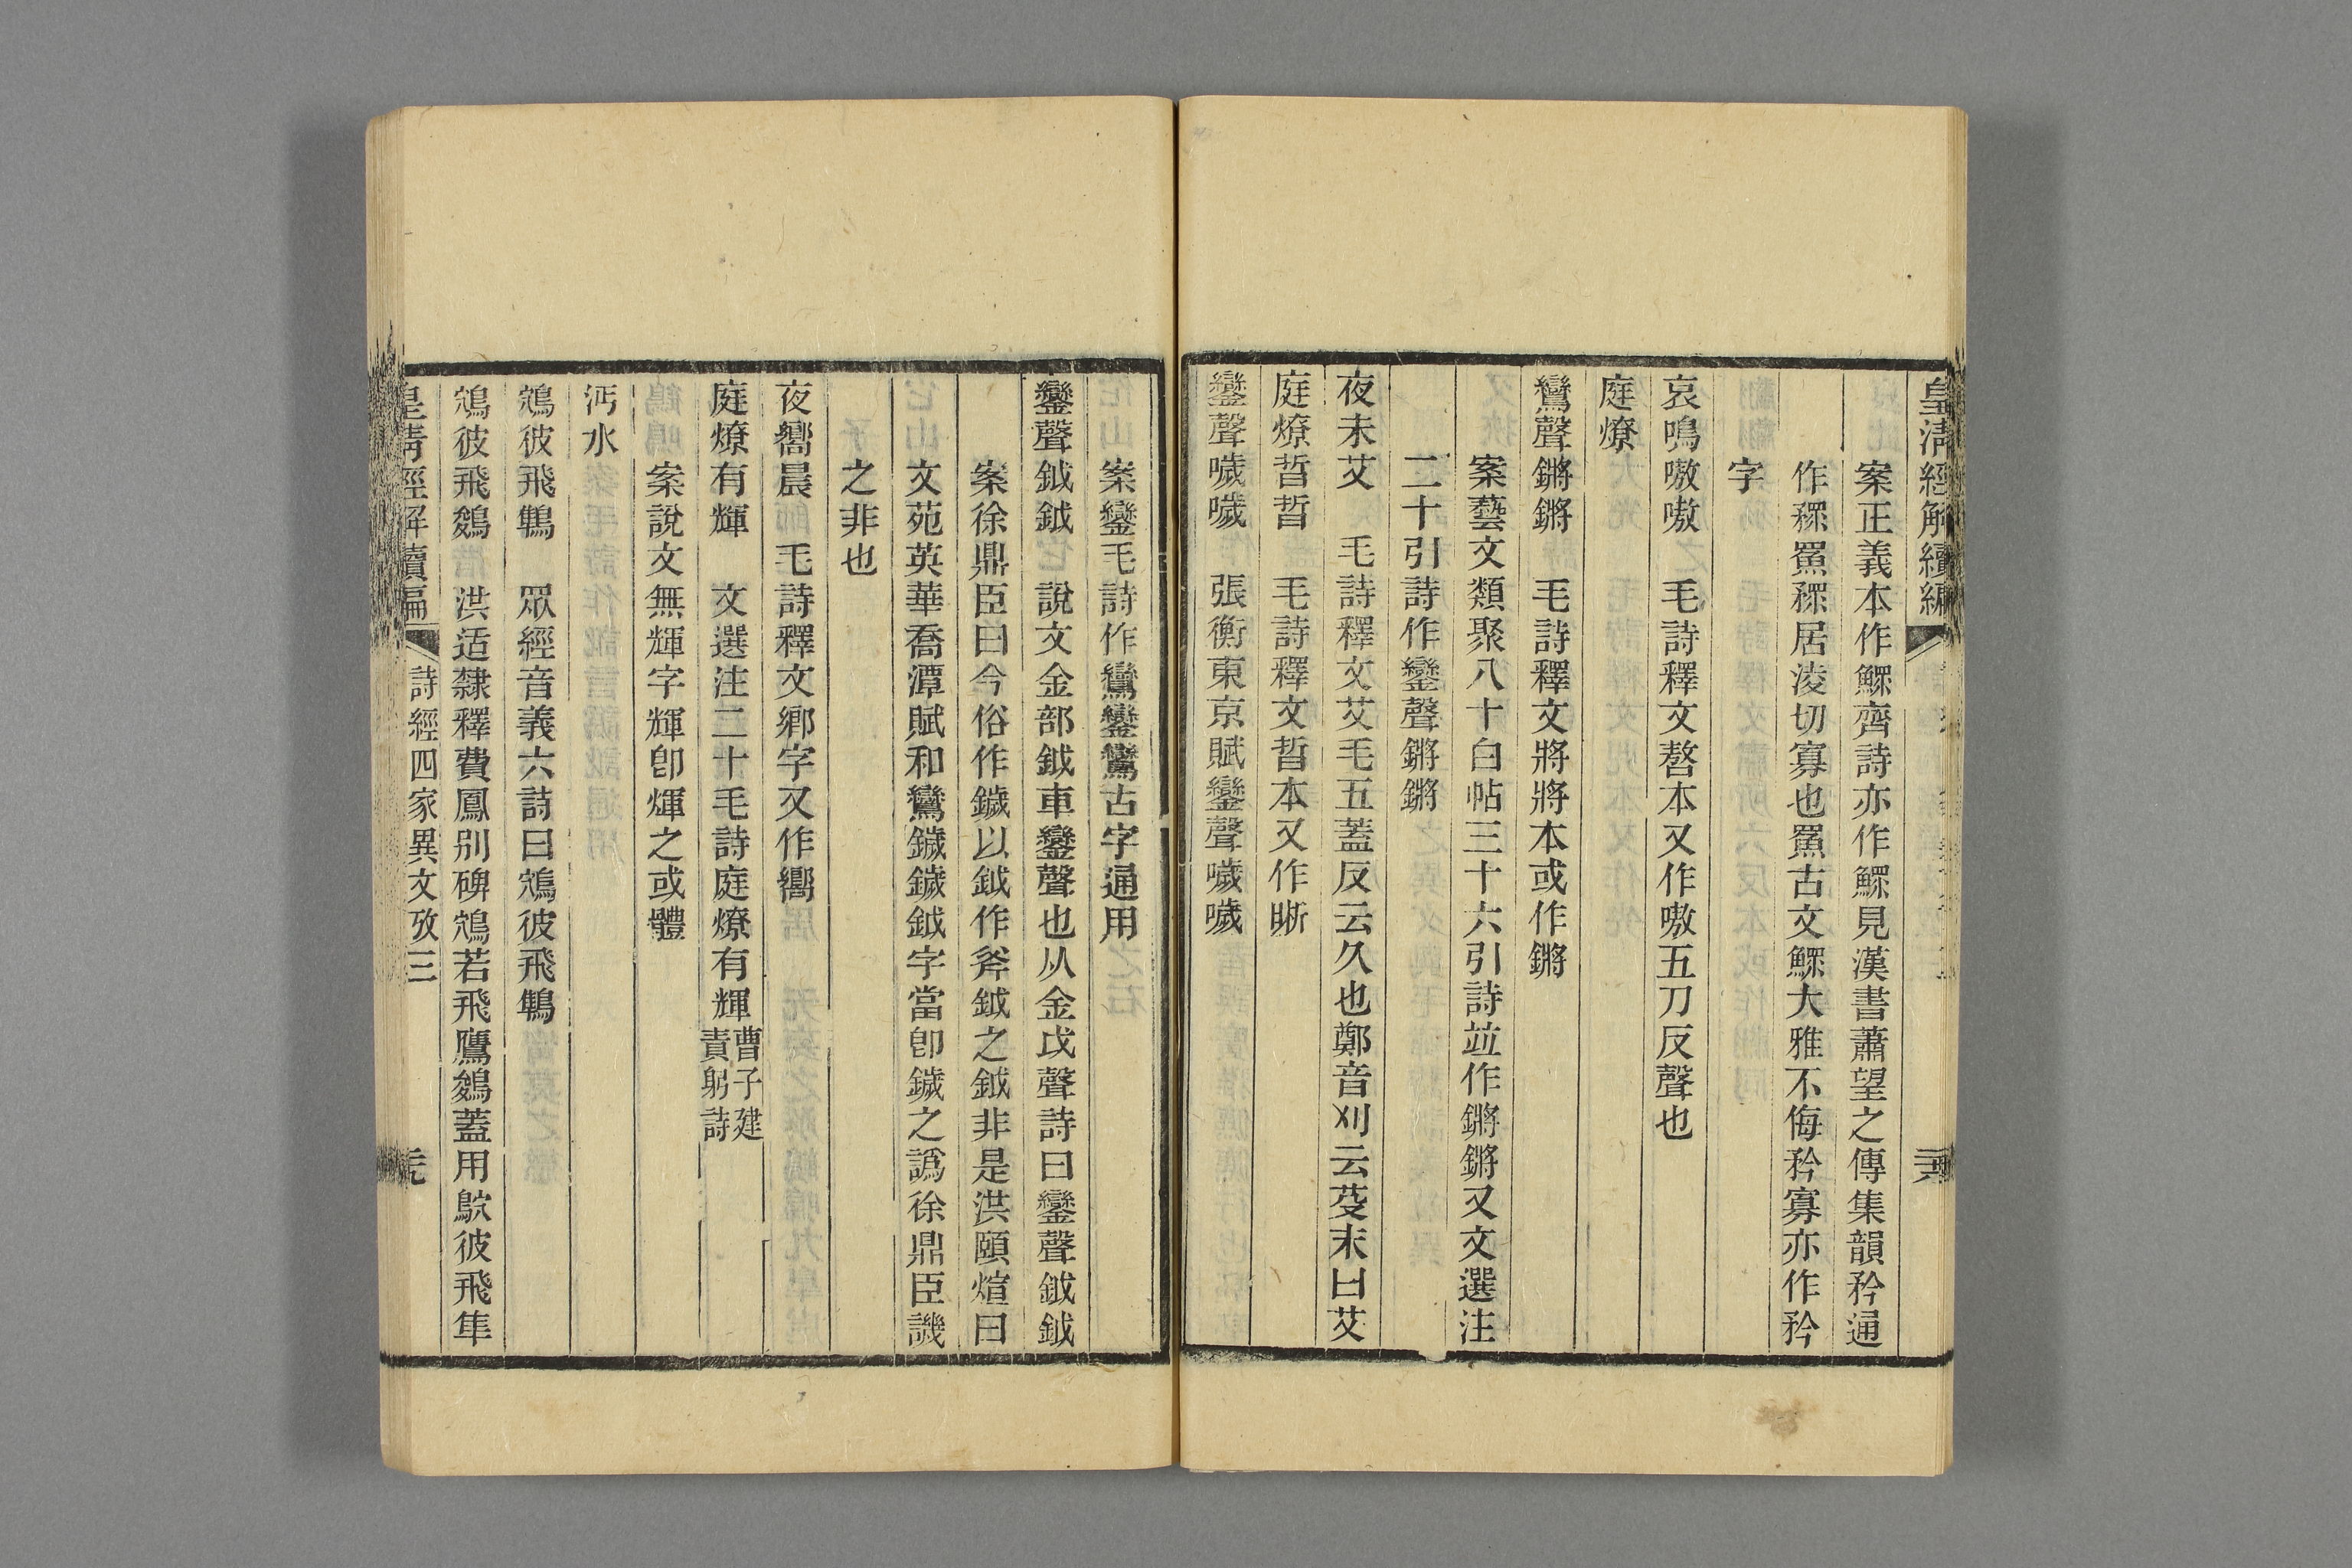 皇淸經解續編
案正義本作鰥齊詩亦作鰥見漢書蕭望之傳集韻矜通
作矝鰥矝居淩切寡也鰥古文鰥大雅不侮矜寡亦作矜
字
哀鳴嗷嗷　毛詩釋文嗸本又作嗷五刀反聲也
庭燎
鸞聲鏘鏘　毛詩釋文將將本或作鏘
案藝文類聚八十白帖三十六引詩竝作鏘鏘又文選注
二十引詩作鑾聲鏘鏘
夜未艾　毛詩釋文艾毛五蓋反云久也鄭音刈云芟末曰艾
庭燎晢晢　毛詩釋文晢本又作晰
鑾聲噦噦　張衡東京賦鑾聲噦噦
案鑾毛詩作鸞鑾鸞古字通用
鑾聲鉞鉞　說文金部鉞車鑾聲也从金戉聲詩曰鑾聲鉞鉞
案徐鼎臣曰今俗作鐬以鉞作斧鉞之鉞非是洪頤煊曰
文苑英華喬潭賦和鸞鐬鐬鉞字當卽鐬之譌徐鼎臣譏
之非也
夜嚮晨　毛詩釋文鄉字又作嚮
庭燎有輝　文選注二十毛詩庭燎有輝曹子建責躬詩
案說文無輝字輝卽煇之或體
沔水
鴥彼飛鶽　眾經音義六詩曰鴥彼飛鶽
鴆彼飛鷂　洪适隸釋費鳳别碑鴆若飛鷹鷂蓋用鴥彼飛隼
皇淸經解續編　詩經四家異文攷三